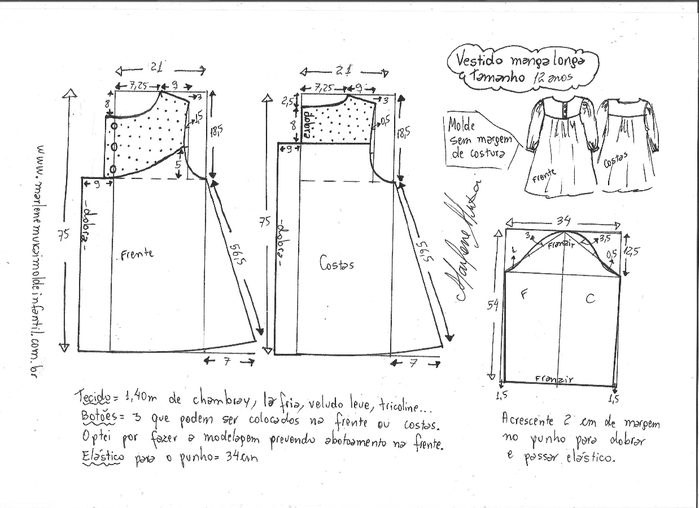 Vestido manga longa
Tamanho 12 anos
Molde
sem margem
de costura
Frente
Costas
21
7,25
9
3
8
1,5
18,5
5
9
75
dobra
Frente
56,5
7
21
7,25
9
3
2,5
8
dobra
0,5
18,5
9
75
dobra
Costas
56,5
7
Marlene Mukai
34
3
Franzir
3,5
1
0,5
12,5
54
F
C
Franzir
1,5
1,5
www.marlenemukaimoldeinfantil.com.br
Tecido = 1,40m de chambray, lã fria, veludo leve, tricoline...
Botões = 3 que podem ser colocados na frente ou costas.
Optei por fazer a modelagem prevendo abotoamento na frente.
Elástico para o punho = 34cm
Acrescente 2 cm de margem
no punho para dobrar
e passar elástico.